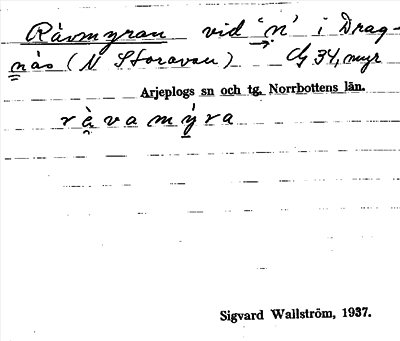 Rävmyran vid 'n' i Drag-
näs (N Storavan) Cf 34, myr
Arjeplogs sn och tg. Norrbottens län.
rȧ̀vamýra
Sigvard Wallström, 1937.